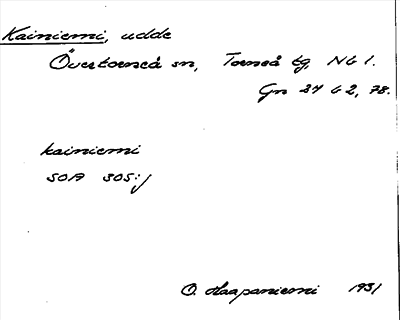 Kainiemi, udde
Övertorneå sn, Torneå tg, Nb l.
Gn 24 G 2, 78.
kainiemi
SOA 305:j
O. Haapaniemi 1931